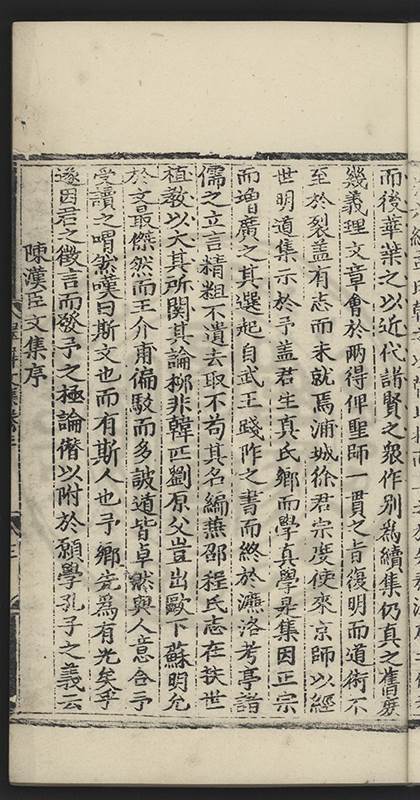 而後華葉之以近代諸賢之衆作別爲續集仍真之舊庶
幾義理文章會於兩得俾聖師一貫之旨復明而道術不
至於裂盖有志而未就焉浦城徐君宗度使來京師以經
世明道集示於予盖君生真氏鄉而學真學是集因正宗
而增廣之其選起自武王踐阼之書而終於濂洛考亭諸
儒之立言精粗不遺去取不苟其名編燕邵程氏志在扶世
植敎以大其所関其論栁非韓匹劉原父豈出歐下蘇明允
於文最傑然而王介甫偏駁而多詖道皆卓然與人意合予
受讀之喟然嘆曰斯文也而有斯人也予鄉先爲有光矣乎
遂因君之徵言而發予之極論僣以附於願學孔子之義云
陳漢臣文集序